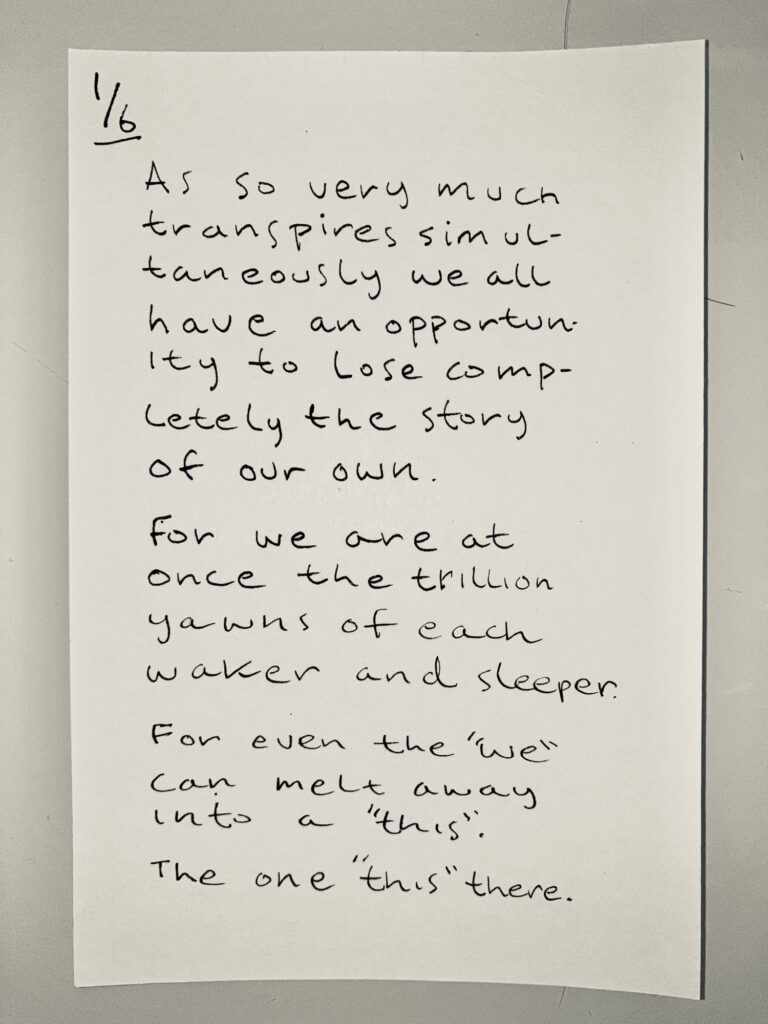 1/6
As so very much
transpires simul-
taneously we all
have an opportun-
ity to lose comp-
letely the story
of our own.
For we are at
once the trillion
yawns of each
waker and sleeper.
For even the "we"
can melt away
into a "this".
The one "this" there.